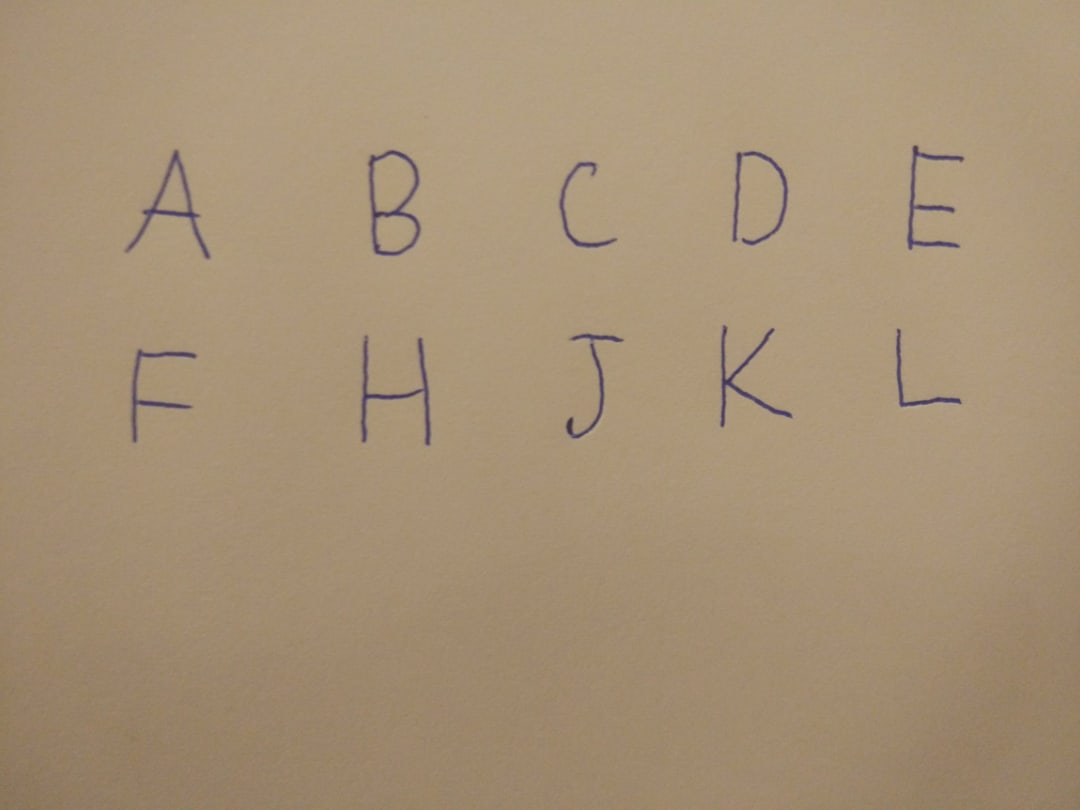 A B C D E
F H J K L